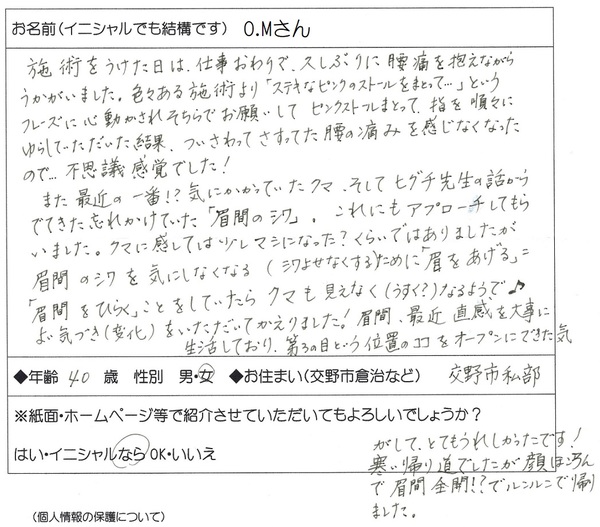 お名前(イニシャルでも結構です) O.Mさん
施術をうけた日は、仕事おわりで、久しぶりに腰痛を抱えながら
うかがいました。色々ある施術より「ステキなピンクのストールをまとって…」という
フレーズに心動かされそちらでお願いして ピンクストールまとって、指を順々に
ゆらしていただいた結果、ついさわってさすってた腰の痛みを感じなくなった
ので… 不思議感覚でした!
また最近の一番!?気にかかっていたクマ、そしてヒグチ先生の話から
でてきた忘れかけていた「眉間のシワ」。これにもアプローチしてもら
いました。クマに感してはツレマシになった?くらいではありましたが
眉間のシワを気にしなくなる(シワよせなくする)ために「眉をあげる」=
「眉間をひらく」ことをしていたらクマも見えなく(うすく?)なるようで♪
よい気づき(変化)をいただいてかえりました!眉間、最近直感を大事に
生活しており、第3の目という位置のココをオープンにできた気
◆年齢 40 歳 性別 男・女 ◆お住まい(交野市倉治など) 交野市私部
※紙面・ホームページ等で紹介させていただいてもよろしいでしょうか?
はい・イニシャルならOK・いいえ
がして、とてもうれしかったです!
寒い帰り道でしたが顔はほころん
で眉間全開!?でルンルンで帰り
ました。
(個人情報の保護について)